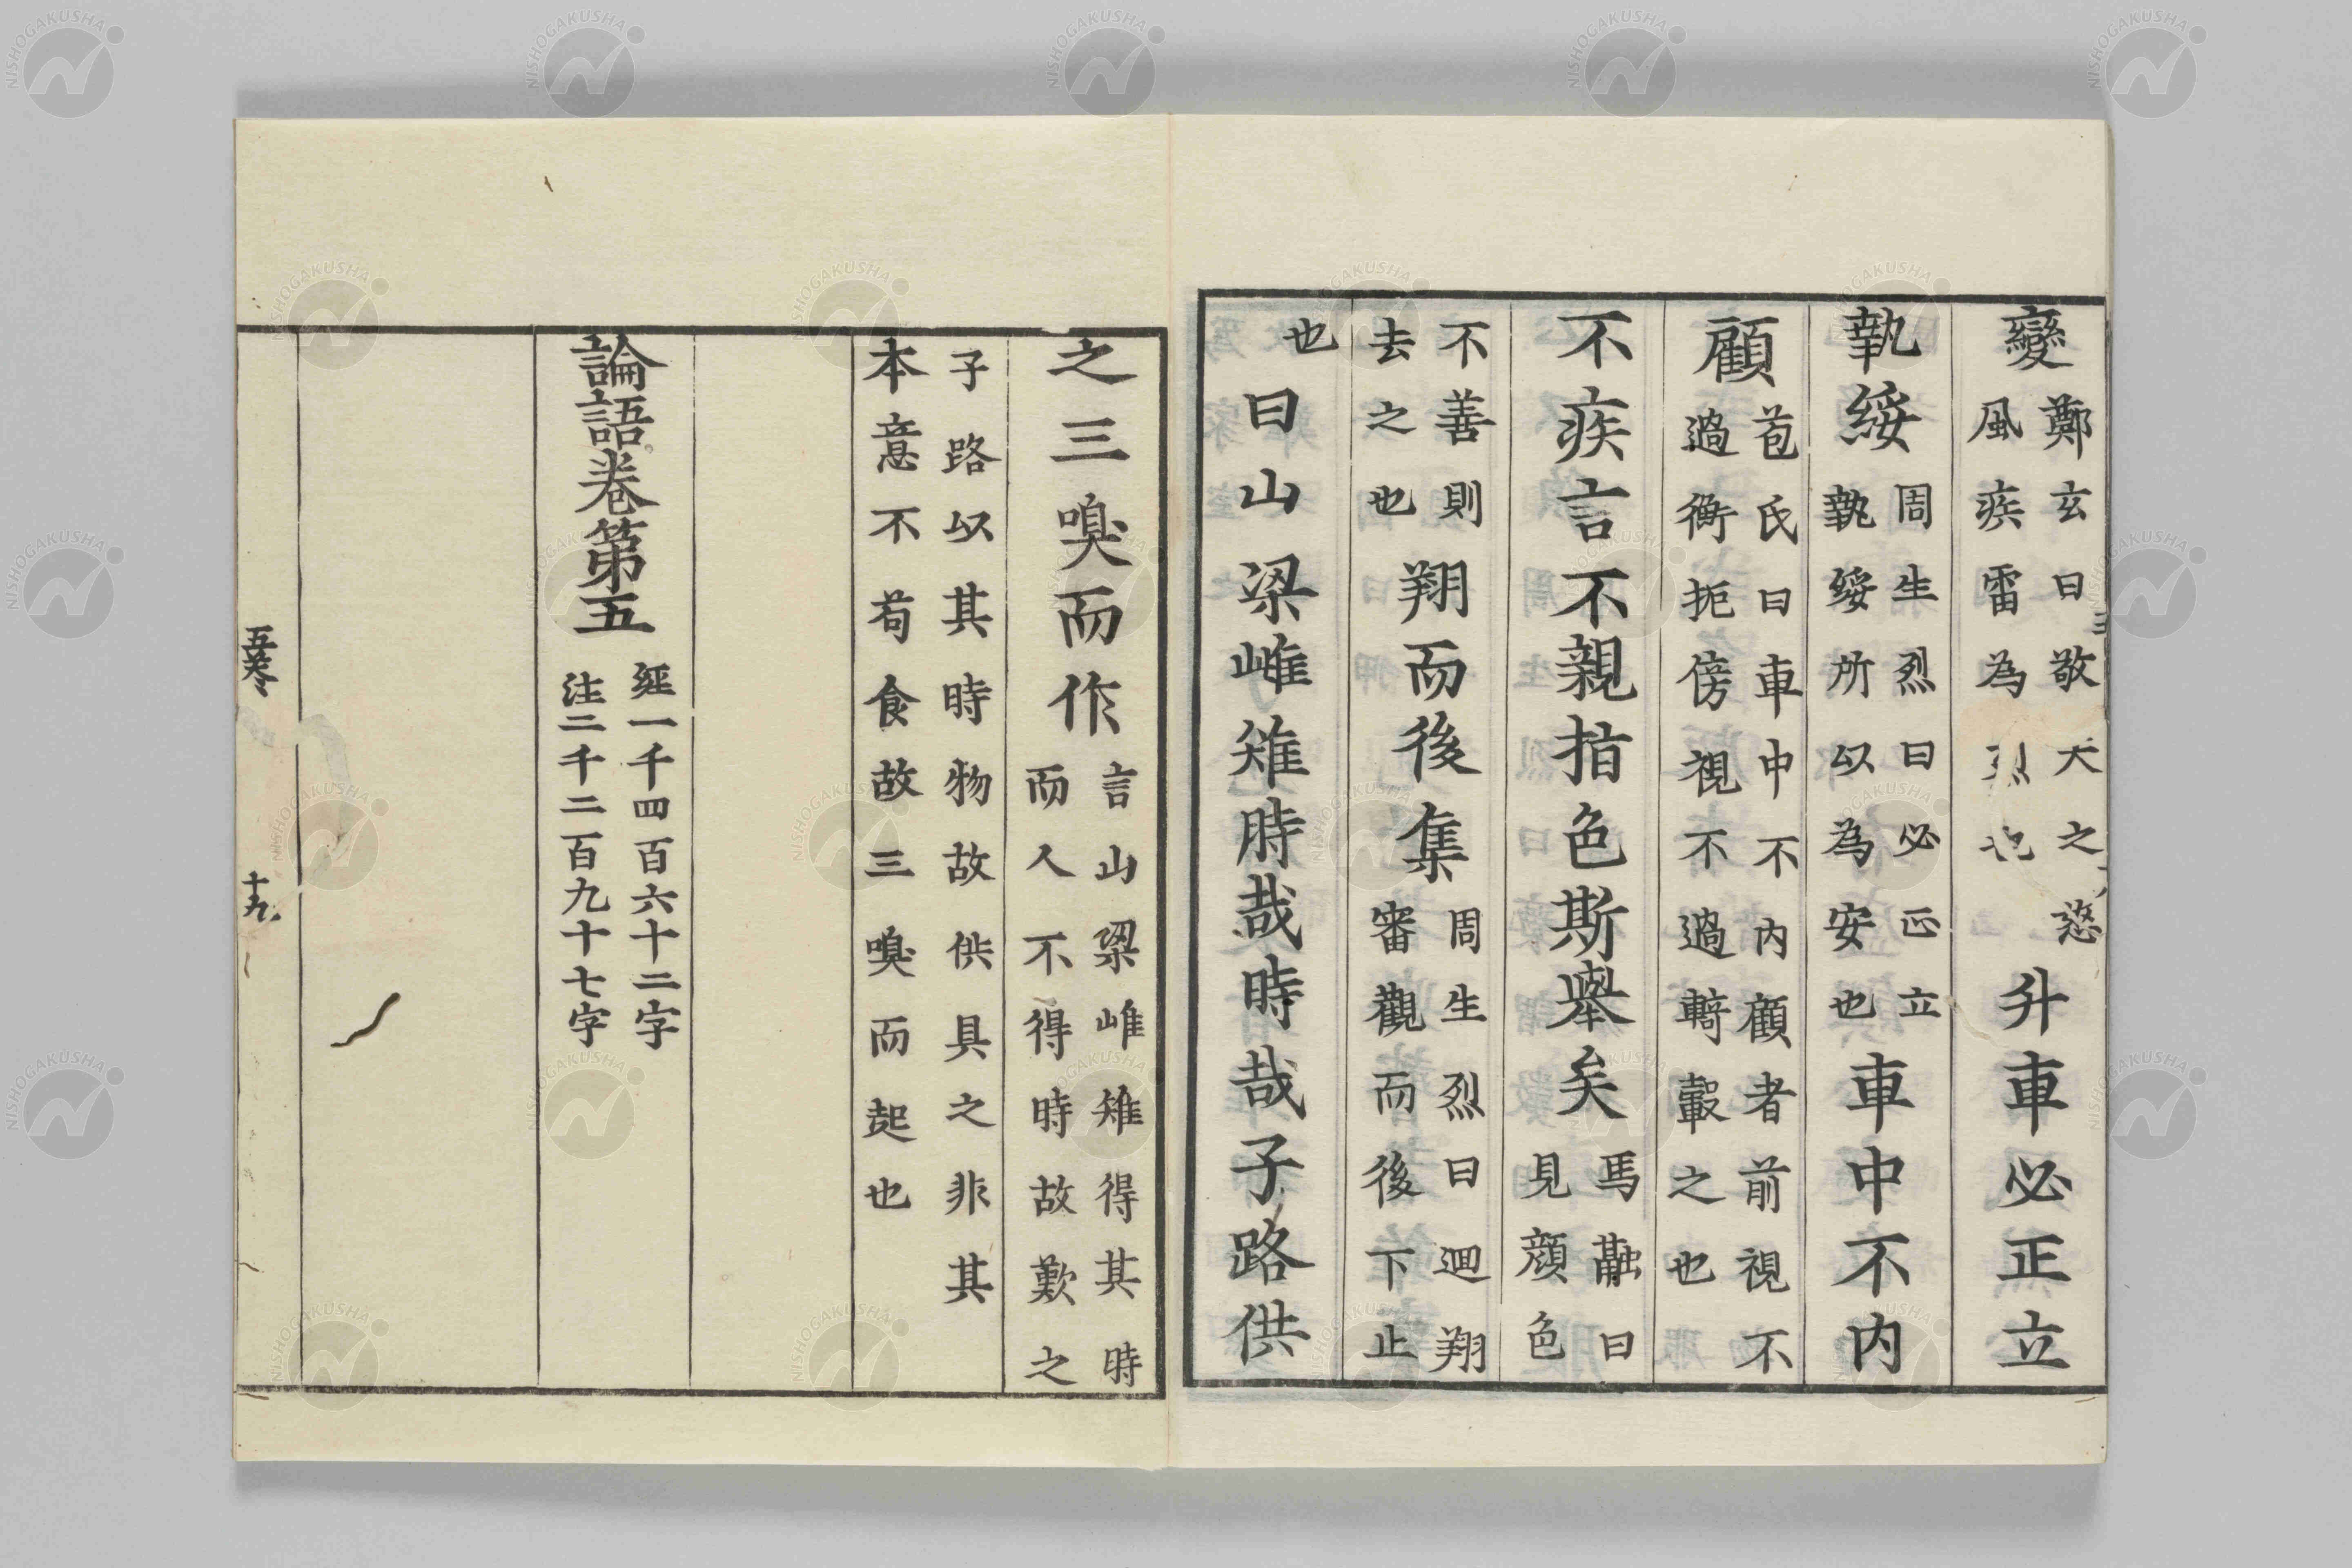 變鄭玄曰敬天之怒風疾雷為烈也升車必正立
執綏周生烈曰必正立執綏所以為安也車中不內
顧苞氏曰車中不內顧者前視不過衡扼傍視不過輢轂之也
不疾言不親指色斯舉矣馬融曰見顔色
不善則去之也翔而後集周生烈曰迴翔審觀而後下止
也曰山梁雌雉時哉時哉子路供
之三嗅而作言山梁雌雉得其時而人不得時故歎之
子路以其時物故供具之非其本意不苟食故三嗅而起也
論語卷第五經一千四百六十二字注二千二百九十七字
五卷
十九
NISHOGAKUSHA